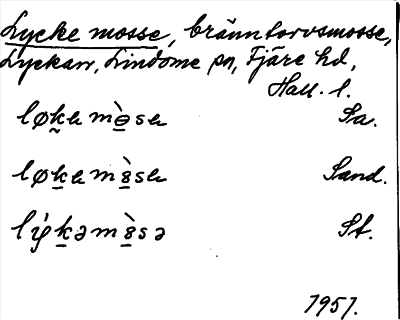 Lycke mosse, bränntorvsmosse,
Lyckan, Lindome sn, Fjäre hd,
Hall. l.
løkamòsa Sa.
løkamòsa Sand.
lýkəmòsə St.
1951.